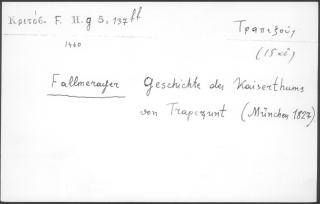 Κριτόβ. F. H. g 5. 137 ff
Τραπεζοῦς
1460
(15 αἰ)
Fallmerayer Geschichte des Kaiserthums
von Trapezunt (München 1827)